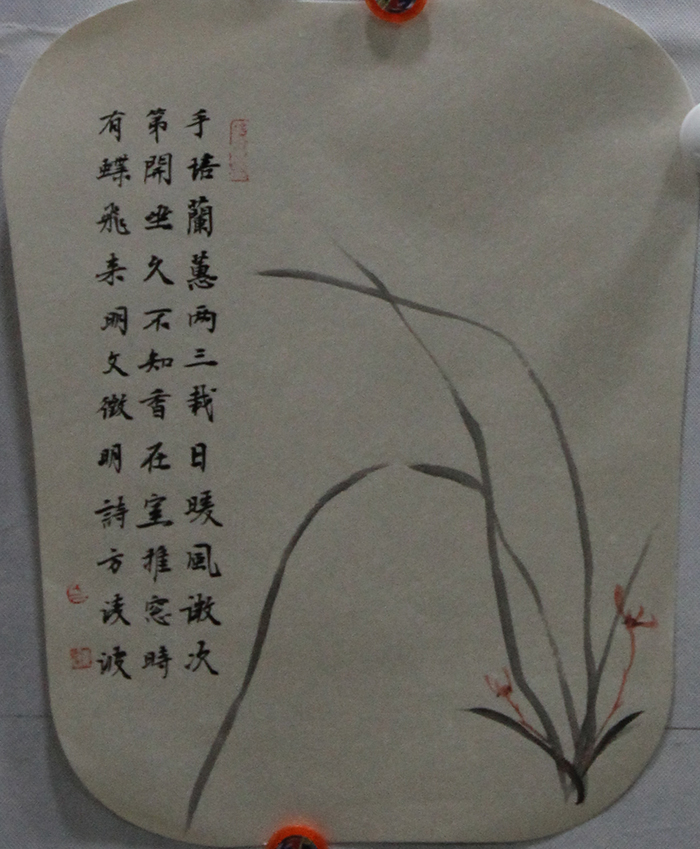 手培蘭蕙两三栽日暖風微次
第開坐久不知香在室推窓時
有蝶飛来明文徵明詩方淩波